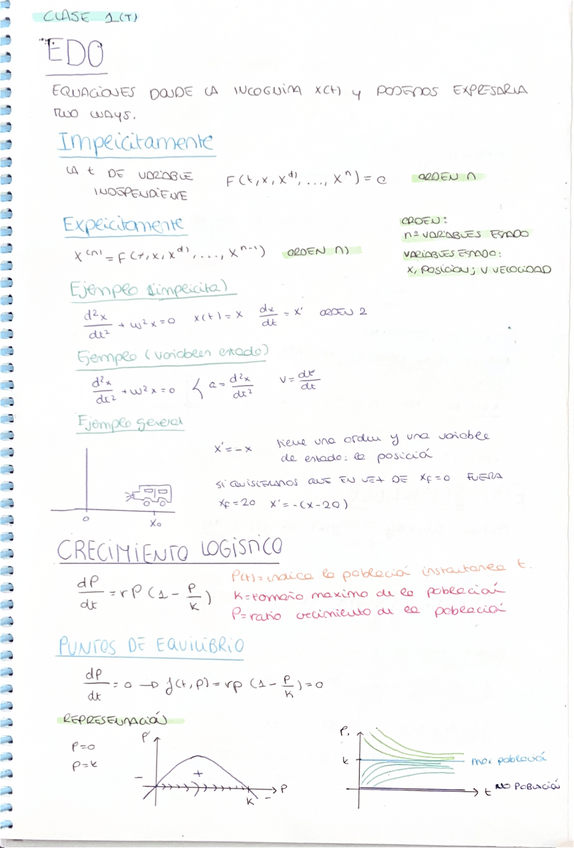 CLASE 1(T)
EDO
EQUACIONES DONDE LA INCOGNITA X(t) y PODEMOS EXPRESARLA
TWO WAYS.
Implícitamente
LA t DE VARIABLE
INDEPENDIENTE
F(t,x,x^(1),...,x^n)=0 ORDEN n
Explícitamente
X^(n)=F(t,x,x^(1),...,x^(n-1)) ORDEN n)
ORDEN:
nº VARIABLES ESTADO
VARIABLES ESTADO:
X, POSICION; V VELOCIDAD
Ejemplo (implícita)
d²x/dt² + ω²x=0 x(t)=x dx/dt = x' ORDEN 2
Ejemplo (variables estado)
d²x/dt² + ω²x=0 { a = d²x/dt² v = dx/dt
Ejemplo general
x'=-x tiene una orden y una variable
de estado: la posició
SI QUISIERAMOS QUE EN VEZ DE X_F=0 FUERA
X_F=20 x'=-(x-20)
0 X₀
CRECIMIENTO LOGISTICO
dP/dt = rP(1-P/K)
P(t)=indica la població instantanea t.
K=tamaño maximo de la població
P=ratio crecimiento de la població
PUNTOS DE EQUILIBRIO
dP/dt = 0 → f(t,P)=rp(1-P/K)=0
REPRESENTACIÓN
P=0
P=K
P'
- + -
K
P
P.
K
max població
t NO POBLACIÓ